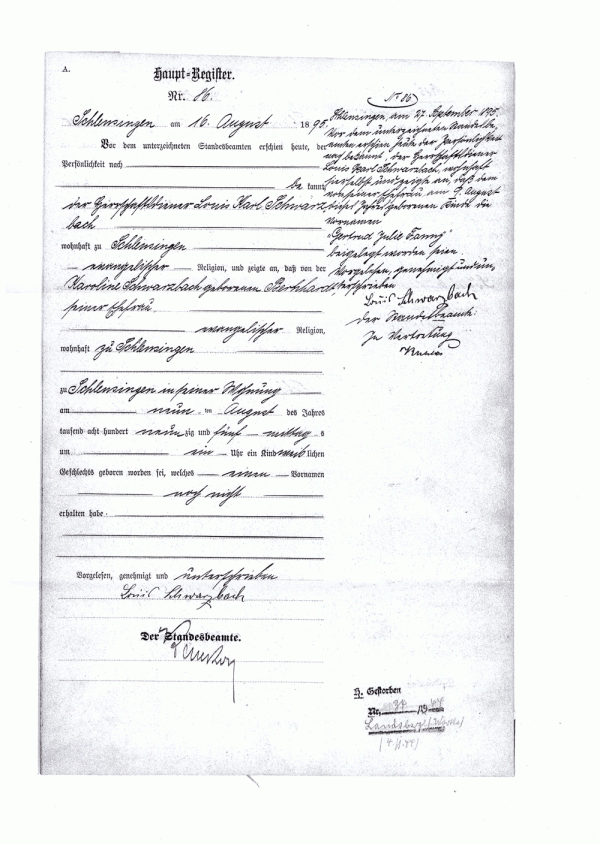 A.
Haupt-Register.
Nr. 86.
Schleusingen am 16. August 1895
Vor dem unterzeichneten Standesbeamten erschien heute, der
Persönlichkeit nach
be kannt,
der Herrschaftsdiener Louis Karl Schwarz
bach
wohnhaft zu Schleusingen
evangelischer Religion, und zeigte an, daß von der
Karoline Schwarzbach geborenen Bernhardt,
seiner Ehefrau
evangelischer Religion,
wohnhaft zu Schleusingen
zu Schleusingen in seiner Wohnung
am neun ten August des Jahres
tausend acht hundert neun zig und fünf mittag s
um ein Uhr ein Kind weib lichen
Geschlechts geboren worden sei, welches einen Vornamen
noch nicht
erhalten habe.
Vorgelesen, genehmigt und unterschrieben
Louis Schwarzbach
Der Standesbeamte.
No 86
Schleusingen, am 27. September 1895.
Vor dem unterzeichneten Standesbe,
amten erschien heute der Persönlichkeit
nach bekannt, der Herrschaftsdiener
Louis Karl Schwarzbach, wohnhaft
hierselbst und zeigte an, daß dem
von seiner Ehefrau am 9. August
dieses Jahres geborenen Kinde die
Vornamen
"Gertrud Julie Fanny"
beigelegt worden seien.
Vorgelesen, genehmigt und un,
terschrieben
Louis Schwarzbach
Der Standesbeamte.
In Vertretung
H. Gestorben
Nr. 19 44
Landsberg (Warthe)